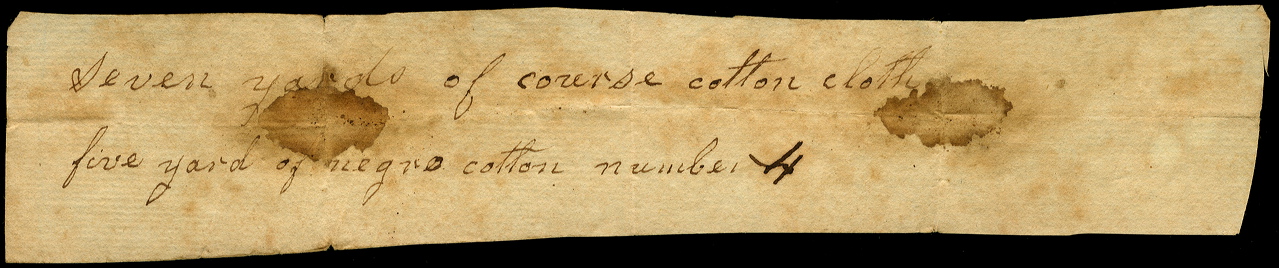 Seven yards of course cotton cloth
five yard of negro cotton number 4